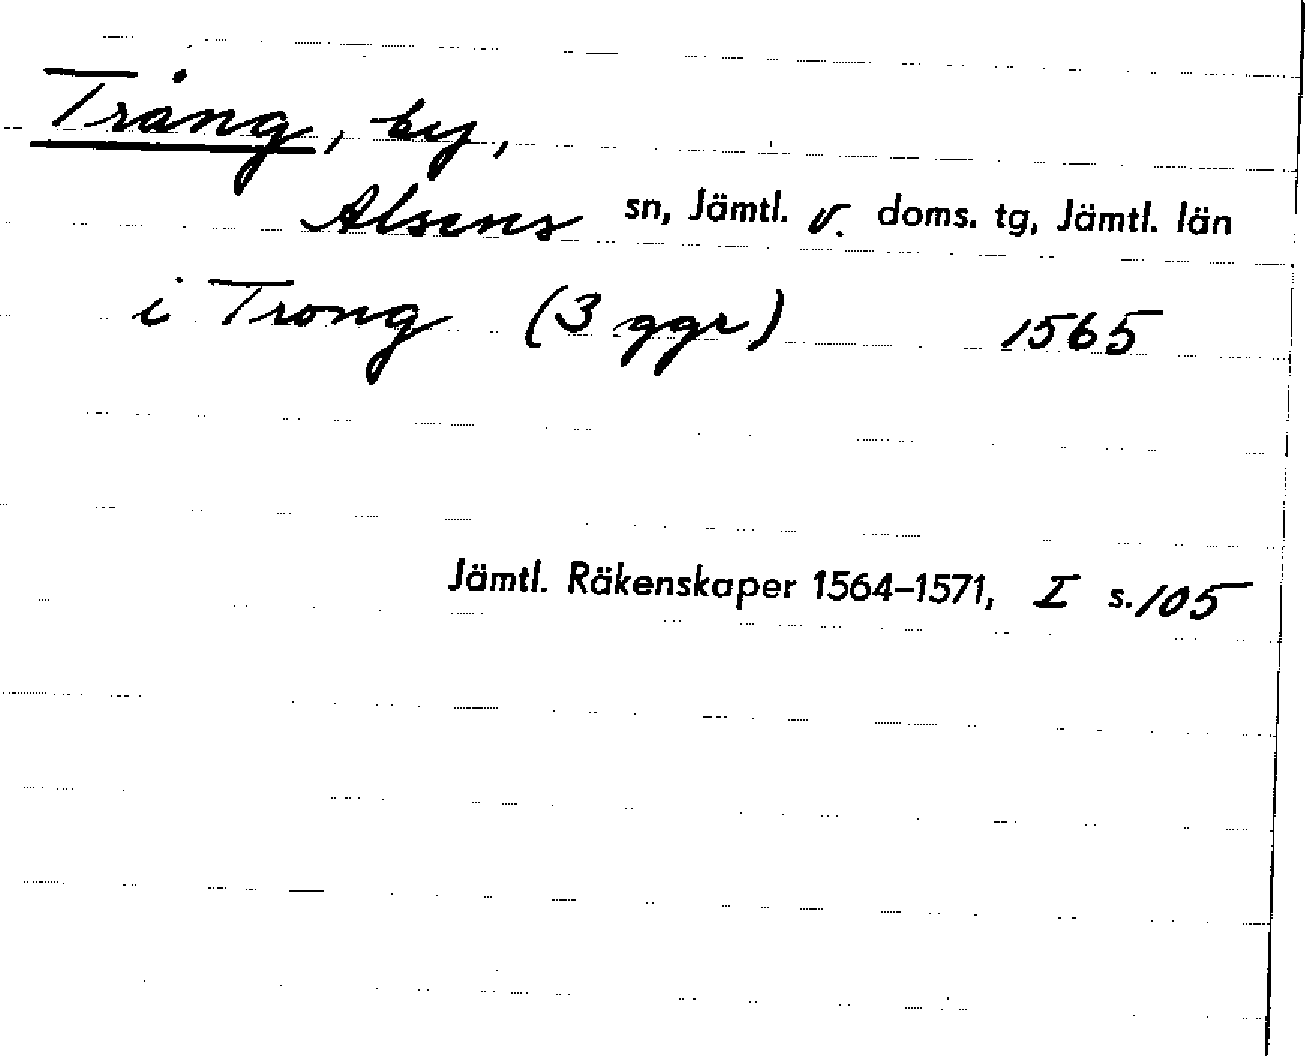 Trång, by,
Alsens sn, Jämtl. v. doms. tg, Jämtl. län
i Trong (3 ggr) 1565
Jämtl. Räkenskaper 1564–1571, I s. 105